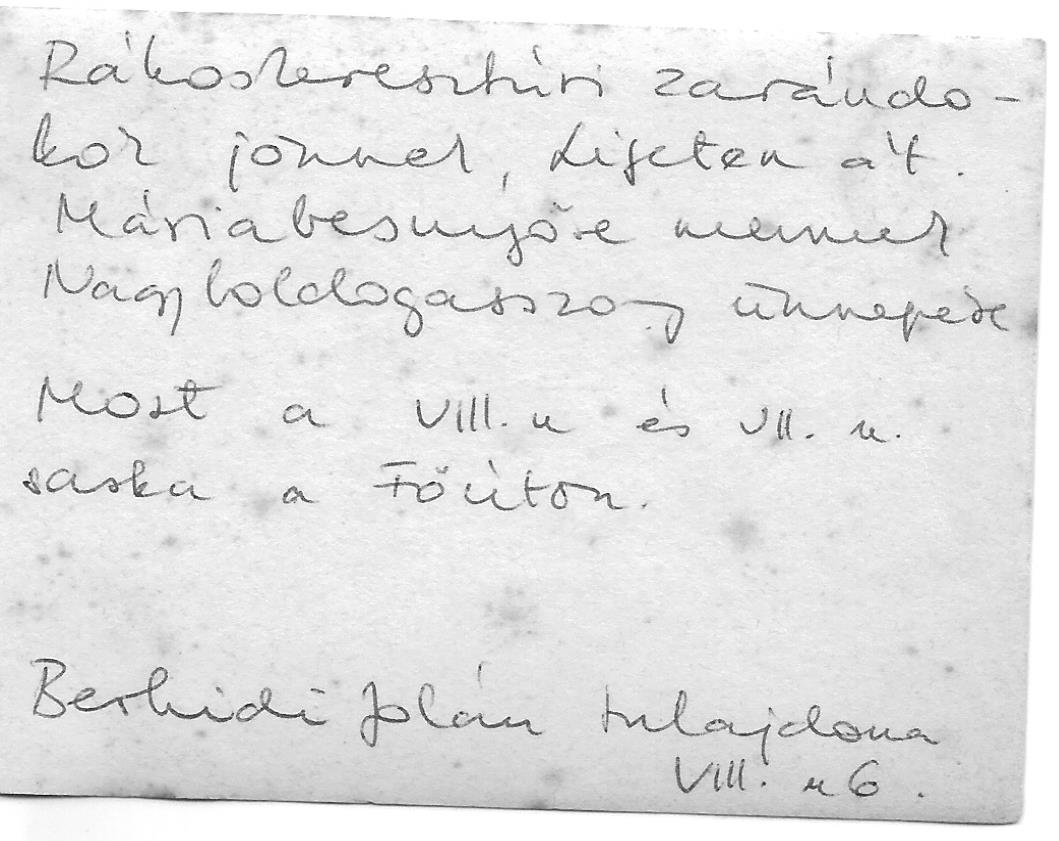 Rákoskeresztúri zarándo-
kok jönnek, Ligeten át.
Máriabesnyőre mennek
Nagyboldogasszony ünnepére
Most a VIII. u és VII. u.
saska a Főúton.
Berhidi Jolán tulajdona
VIII. u 6.